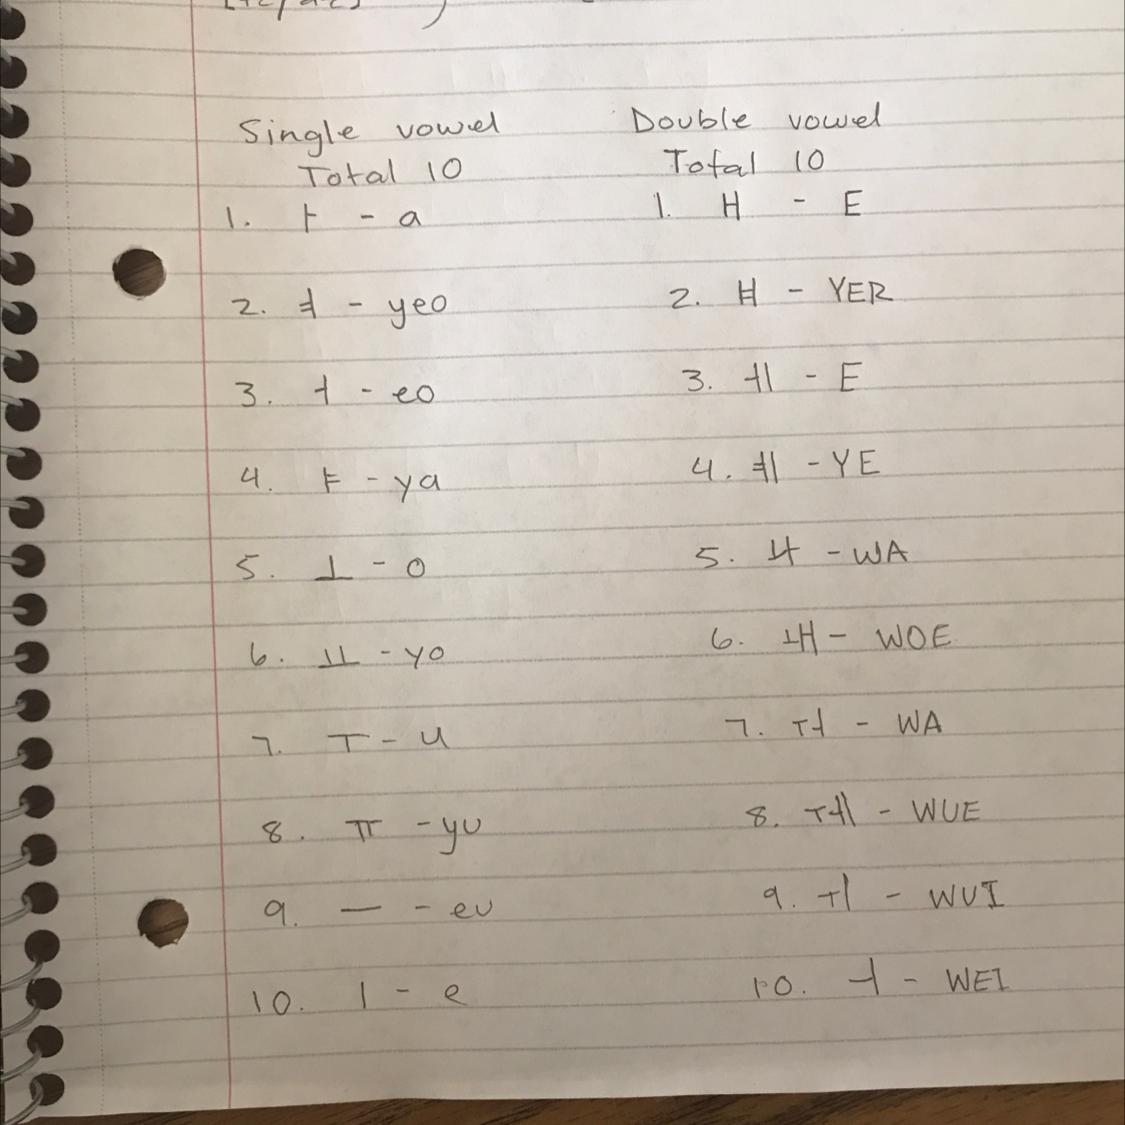 Single vowel
Total 10
1. ㅏ - a
2. ㅕ - yeo
3. ㅓ - eo
4. ㅑ - ya
5. ㅗ - o
6. ㅛ - yo
7. ㅜ - u
8. ㅠ - yu
9. ㅡ - eu
10. ㅣ - e
Double vowel
Total 10
1. ㅐ - E
2. ㅒ - YER
3. ㅔ - E
4. ㅖ - YE
5. ㅘ - WA
6. ㅙ - WOE
7. ㅝ - WA
8. ㅞ - WUE
9. ㅟ - WUI
10. ㅢ - WEI